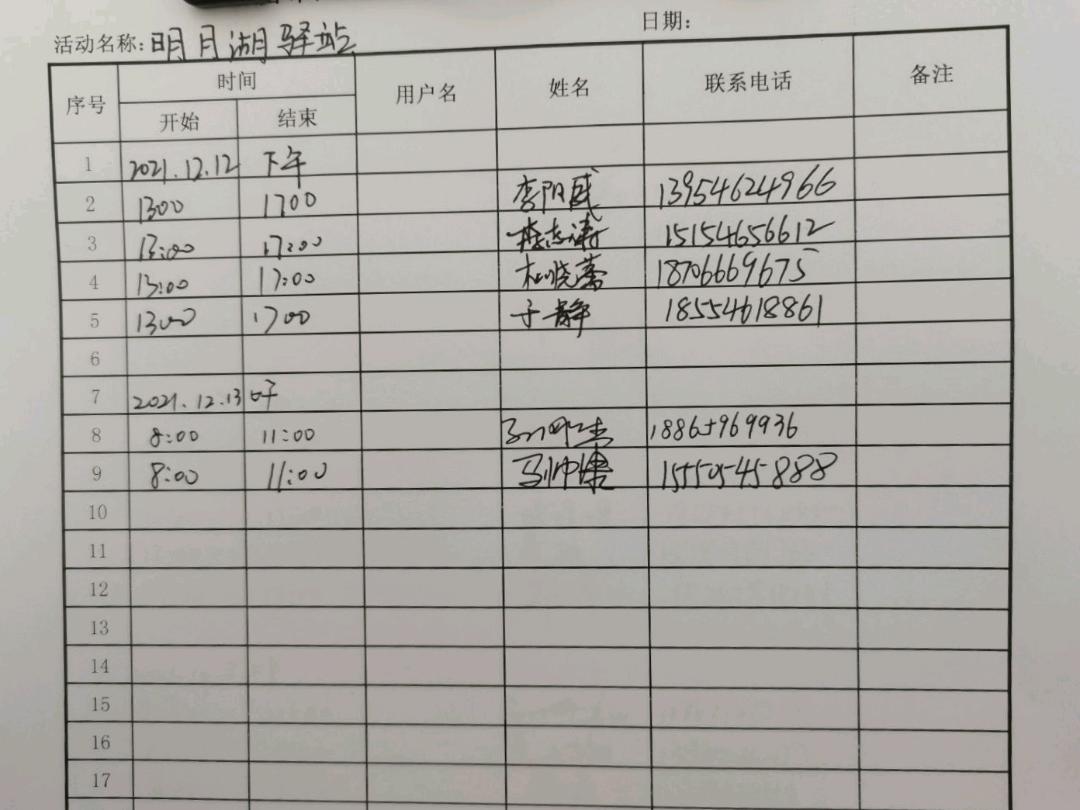 活动名称：明月湖驿站 日期：
序号 时间 用户名 姓名 联系电话 备注
开始 结束
1 2021.12.12 下午
2 1300 1700 李阳 13954624966
3 13:00 17:00 李志涛 15154656612
4 13:00 17:00 杜晓蕾 18706669675
5 1300 1700 于静 18554618861
6
7 2021.12.13
8 8:00 11:00 18865969936
9 8:00 11:00 马帅康 15550545888
10
11
12
13
14
15
16
17